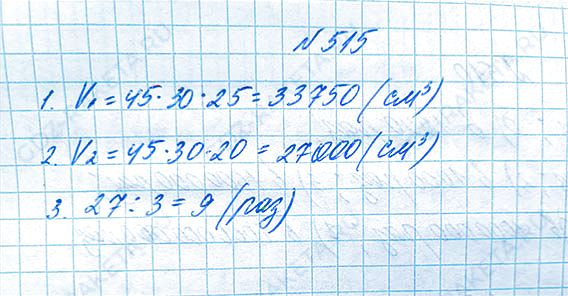 № 515
1. V₁ = 45 · 30 · 25 = 33750 (см³)
2. V₂ = 45 · 30 · 20 = 27000 (см³)
3. 27 : 3 = 9 (раз)